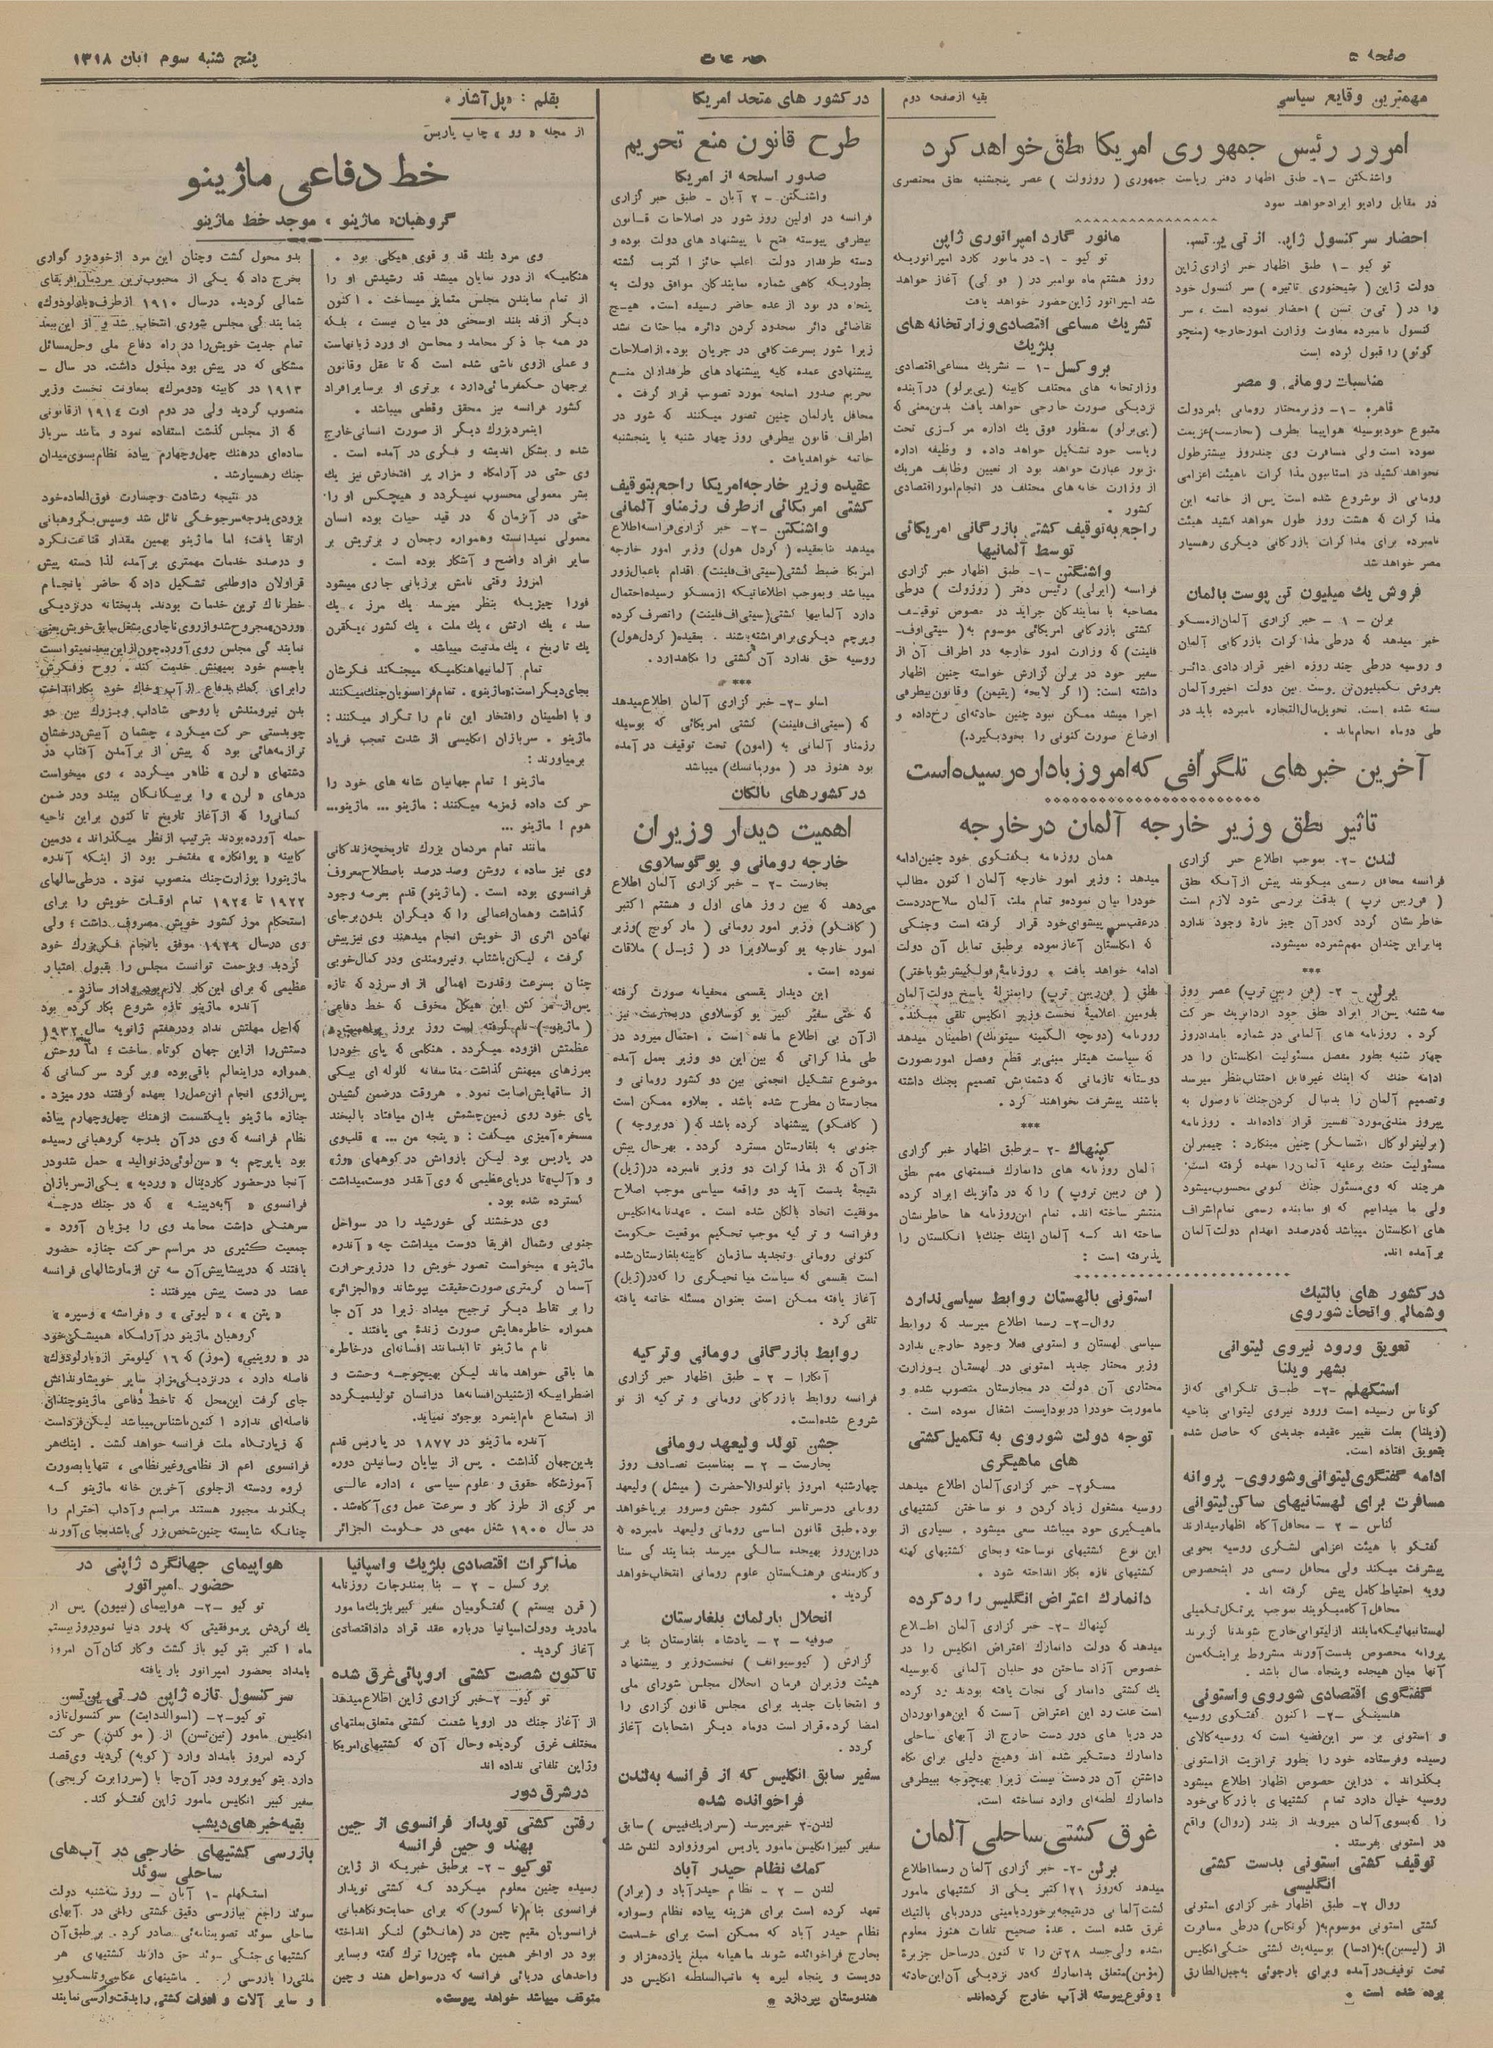 صفحه ۵
اطلاعات
پنج شنبه سوم آبان ۱۳۱۸
مهمترین وقایع سیاسی
بقیه از صفحه دوم
امروز رئیس جمهوری امریکا نطق خواهد کرد
واشنگتن -۱- طبق اظهار دفتر ریاست جمهوری ( روزولت ) عصر پنجشنبه نطق مختصری
در مقابل رادیو ایراد خواهد نمود
احضار سر کنسول ژاپن از تی ین تسن
تو کیو -۱ طبق اظهار خبر گزاری ژاپن
دولت ژاپن
سر کنسول خود
را در ( تی‌ین تسن ) احضار نموده است ، سر
کنسول نامبرده معاونت وزارت امور خارجه (منچو
کوئو) را قبول کرده است
مناسبات رومانی و مصر
قاهره -۱- وزیر مختار رومانی بامر دولت
متبوع خود بوسیله هواپیما بطرف (بخارست) عزیمت
نموده است ولی مسافرت وی چند روز بیشتر طول
نخواهد کشید
مذا کرات باهیئت اعزامی
رومانی از نو شروع شده است پس از خاتمه این
مذا کرات که هشت روز طول خواهد کشید هیئت
نامبرده برای مذا کرات بازرگانی دیگری رهسپار
مصر خواهد شد
فروش یک میلیون تن پوست بالمان
برلن - ۱ - خبر گزاری آلمان از مسکو
خبر میدهد که در طی مذا کرات بازرگانی آلمان
و روسیه در طی چند روزه اخیر قرار دادی دائر
بفروش یکمیلیون تن پوست بین دولت اخیر و آلمان
بسته شده است. تحویل مال التجاره نامبرده باید در
طی دو ماه انجام یابد.
مانور گارد امپراتوری ژاپن
تو کیو -۱- در مانور کارد امپراتوری که
روز هشتم ماه نوامبر در ( فو کی ) آغاز خواهد
شد امپراتور ژاپن حضور خواهد یافت
تشریک مساعی اقتصادی وزارتخانه های
بلژیک
برو کسل -۱ - تشریک مساعی اقتصادی
وزارتخانه های مختلف کابینه (پی‌یرلو) در آینده
نزدیکی صورت خارجی خواهد یافت بدین معنی که
(پی‌یرلو) بمنظور فوق یک اداره مر کزی تحت
ریاست خود تشکیل خواهد داد و وظیفه اداره
نزبور عبارت خواهد بود از تعیین وظایف هریک
از وزارت خانه های مختلف در انجام امور اقتصادی
کشور .
راجع به توقیف کشتی بازرگانی امریکائی
توسط آلمانیها
واشنگتن -۱- طبق اظهار خبر گزاری
فرانسه (ایرلی) رئیس دفتر ( روزولت ) در طی
مصاحبه با نمایندکان جراید در خصوص توقیف
کشتی بازرکانی امریکائی موسوم به ( سیتی اوف
فلینت) که وزارت امور خارجه در اطراف آن از
سفیر خود در برلن گزارش خواسته چنین اظهار
داشته است: (ا کر لایحه (پتیمن) و قانون بیطرفی
اجرا میشد ممکن نبود چنین حادثه‌ای رخ داده و
اوضاع صورت کنونی را بخود بگیرد.)
آخرین خبرهای تلگرافی که امروز باداره رسیده است
تاثیر نطق وزیر خارجه آلمان در خارجه
لندن -۲- بموجب اطلاع خبر گزاری
فرانسه محافل رسمی میگویند پیش از آنکه نطق
( فن‌ریبن تروپ ) بدقت بررسی شود لازم است
خاطر نشان کردد که در آن چیز تازه وجود ندارد
بنابراین چندان مهم شمرده نمیشود.
***
برلن - ۲- (فن ریبن تروپ) عصر روز
سه شنبه پس از ایراد نطق خود از دانزیک حر کت
کرد . روزنامه های آلمانی در شماره بامداد روز
چهار شنبه بطور مفصل مسئولیت انکلستان را در
ادامه جنک که اینک غیر قابل اجتناب بنظر میرسد
و تصمیم آلمان را بدنبال کردن جنک تا وصول به
پیروز مندی مورد تفسیر قرار داده‌اند . روزنامه
چنین مینگارد : چیمبرلن
مسئولیت جنک برعلیه آلمان را بعهده گرفته است
هر چند که وی مسئول جنک کنونی محسوب میشود
ولی ما میدانیم که او نماینده رسمی تمام اشراف
های انگلستان میباشد که درصدد انهدام دولت آلمان
بر آمده اند.
همان روزنامه بگفتگوی خود چنین ادامه
میدهد : وزیر امور خارجه آلمان اکنون مطالب
خود را بیان نموده و تمام ملت آلمان سلاح در دست
در عقب سر پیشوای خود قرار گرفته است و جنگی
که انگلستان آغاز نموده بر طبق تمایل آن دولت
ادامه خواهد یافت .
نطق ( فن‌ریبن تروپ) را بمنزلهٔ پاسخ دولت آلمان
باخرین اعلامیهٔ نخست وزیر انگلیس تلقی میکند .
روزنامه
اطمینان میدهد
که سیاست هیتلر مبنی بر قطع و فصل امور بصورت
دوستانه تا زمانی که دشمنانش تصمیم بجنک داشته
باشند پیشرفت نخواهند کرد .
***
کپنهاک -۲- بر طبق اظهار خبر گزاری
آلمان روزنامه های دانمارک قسمتهای مهم نطق
( فن ریبن تروپ ) را که در دانزیک ایراد کرده
منتشر ساخته اند. تمام این روزنامه ها خاطر نشان
ساخته اند کـه آلمان اینک جنک با انگلستان را
پذیرفته است :
در کشور های بالتیک
و شمالی و اتحاد شوروی
تعویق ورود نیروی لیتوانی
بشهر ویلنا
استکهلم -۲- طبق تلگرافی که از
کوناس رسیده است ورود نیروی لیتوانی بناحیه
(ویلنا) بعلت تغییر عقیده جدیدی که حاصل شده
بتعویق افتاده است.
ادامه گفتگوی لیتوانی و شوروی - پروانه
مسافرت برای لهستانیهای ساکن لیتوانی
کناس - ۲ - محافل آگاه اظهار میدارند
گفتگو با هیئت اعزامی لشگری روسیه بخوبی
پیشرفت میکند ولی محافل رسمی در اینخصوص
رویه احتیاط کامل پیش گرفته اند .
محافل آگاه میگویند بموجب پرتکل تکمیلی
لهستانیهائیکه مایلند از لیتوانی خارج شوند نا گزیرند
پروانه مخصوص بدست آورند مشروط بر اینکه سن
آنها میان هیجده و پنجاه سال باشد .
گفتگوی اقتصادی شوروی و استونی
هلسینکی -۲- اکنون گفتگوی روسیه
و استونی بر سر این قضیه است که روسیه کالای
رسیده و فرستاده خود را بطور ترانزیت از استونی
بگذراند . در این خصوص اظهار اطلاع میشود
روسیه خیال دارد تمام کشتیهای بازرگانی خود
را که بسوی آلمان میروند از بندر (روال) واقع
در استونی بفرستد .
توقیف کشتی استونی بدست کشتی
انگلیسی
روال ۲- طبق اظهار خبر گزاری استونی
کشتی استونی موسوم به (کوناکس) در طی مسافرت
از (لیسبن) به (ادسا) بوسیله یک کشتی جنگی انگلیس
تحت توقیف در آمده و برای بازجوئی به جبل الطارق
برده شده است .
استونی با لهستان روابط سیاسی ندارد
روال -۲- رسما اطلاع میرسد که روابط
سیاسی لهستان و استونی فعلا وجود خارجی ندارد
وزیر مختار جدید استونی در لهستان بوزارت
مختاری آن دولت در مجارستان منصوب شده و
ماموریت خود را در بوداپست اشغال نموده است .
توجه دولت شوروی به تکمیل کشتی
های ماهیگری
مسکو۲- خبر گزاری آلمان اطلاع میدهد
روسیه مشغول زیاد کردن و نو ساختن کشتیهای
ماهیگیری خود میباشد سعی میشود . بسیاری از
این نوع کشتیهای نوساخته و بجای کشتیهای کهنه
کشتیهای تازه بکار انداخته شود .
دانمارک اعتراض انگلیس را رد کرده
کپنهاک -۲- خبر گزاری آلمان اطـلاع
میدهد که دولت دانمارک اعتراض انگلیس را در
خصوص آزاد ساختن دو خلبان آلمانی که بوسیله
یک کشتی دانمارکی نجات یافته بودند رد کرده
است علت رد این اعتراض آنست که این هوانوردان
در دریا های دور دست خارج از آبهای ساحلی
دانمارک دستگیر شده اند و هیچ دلیلی برای نگاه
داشتن آن در دست نیست زیرا بهیچوجه ببیطرفی
دانمارک لطمه‌ای وارد نساخته است.
غرق کشتی ساحلی آلمان
برلن -۲- خبر گزاری آلمان رسما اطلاع
میدهد که روز ۲۱ اکتبر یکی از کشتیهای مامور
گشت آلمانی در نتیجه برخورد بامینی در دریای بالتیک
غرق شده است . عدهٔ صحیح تلفات هنوز معلوم
نشده ولی جسد ۲۸ تن را تا کنون در ساحل جزیرهٔ
(مؤمن) متعلق بدانمارک که در نزدیکی آن این حادثه
بوقوع پیوسته از آب خارج کرده‌اند.
در کشور های متحد امریکا
طرح قانون منع تحریم
صدور اسلحه از امریکا
واشنگتن - ۲ آبان - طبق خبر گزاری
فرانسه در اولین روز شور در اصلاحات قـانون
بیطرفی پیوسته فتح با پیشنهاد های دولت بوده و
دسته طرفدار دولت اغلب حائز اکثریت گشته
بطوریکه گاهی شماره نمایندگان موافق دولت به
پنجاه در نود از عده حاضر رسیده است. هیـچ
تقاضائی دائر بمحدود کردن دائره مباحثات نشد
زیرا شور بسرعت کافی در جریان بود. از اصلاحات
پیشنهادی عمده کلیه پیشنهاد های طرفداران منـع
تحریم صدور اسلحه مورد تصویب قرار گرفت .
محافل پارلمان چنین تصور میکنند که شور در
اطراف قانون بیطرفی روز چهار شنبه یا پنجشنبه
خاتمه خواهد یافت.
عقیده وزیر خارجه امریکا راجع بتوقیف
کشتی امریکائی از طرف رزمناو آلمانی
واشنگتن -۲- خبر گزاری فرانسه اطلاع
میدهد بنا بعقیده ( کردل هول) وزیر امور خارجه
امریکا ضبط کشتی (سیتی اف فلینت) اقدام باعمال زور
میباشد و بموجب اطلاعاتیکه از مسکو رسیده احتمال
دارد آلمانیها کشتی (سیتی اف فلینت) را تصرف کرده
و پرچم دیگری بر افراشته باشند . بعقیده ( کردل هول)
روسیه حق ندارد آن کشتی را نگاهدارد.
***
اسلو -۲- خبر گزاری آلمان اطلاع میدهد
که (سیتی اف فلینت) کشتی امریکائی که بوسیله
رزمناو آلمانی به (امون) تحت توقیف در آمده
بود هنوز در ( مورمانسک) میباشد
در کشورهای بالکان
اهمیت دیدار وزیران
خارجه رومانی و یوگوسلاوی
بخارست -۲- خبر گزاری آلمان اطلاع
می‌دهد که بین روز های اول و هشتم اکتبر
( گافنکو) وزیر امور رومانی ( مار کویچ ) وزیر
امور خارجه یو گوسلاویرا در ( ژیـل ) ملاقات
نموده است .
این دیدار بقسمی مخفیانه صورت گرفته
که حتی سفیر کبیر یو کوسلاوی در بخارست نیز
از آن بی اطلاع مانده است . احتمال میرود در
طی مذا کراتی که بین این دو وزیر بعمل آمده
موضوع تشکیل انجمنی بین دو کشور رومانی و
مجارستان مطرح شده باشد . بعلاوه ممکن است
( کافنکو) پیشنهاد کرده باشد که ( دوبروجه )
جنوبی به بلغارستان مسترد گردد. بهر حال پیش
از آن که از مذا کرات دو وزیر نامبرده در (ژیل)
نتیجهٔ بدست آید دو واقعه سیاسی موجب اصلاح
موفقیت اتحاد بالکان شده است . عهدنامه انگلیس
و فرانسه و تر کیه موجب تحکیم موقعیت حکومت
کنونی رومانی و تجدید سازمان کابینه بلغارستان شده
است بقسمی که سیاست میا نجیگری را که در (ژیل)
آغاز یافته ممکن است بعنوان مسئله خاتمه یافته
تلقی کرد .
روابط بازرگانی رومانی و ترکیه
آنکارا - ۲ - طبق اظهار خبر گزاری
فرانسه روابط بازرگانی رومانی و تر کیه از نو
شروع شده است.
جشن تولد ولیعهد رومانی
بخارست - ۲ - بمناسبت تصادف روز
چهارشنبه امروز باتولد والاحضرت ( میشل ) ولیعهد
رومانی در سرتاسر کشور جشن و سرور بر پا خواهد
بود. طبق قانون اساسی رومانی ولیعهد نامبرده که
در این روز بهیجده سالگی میرسد بنمایندگی سنا
و کارمندی فرهنگستان علوم رومانی انتخاب خواهد
گردید .
انحلال پارلمان بلغارستان
صوفیه - ۲ - پادشاه بلغارستان بنا بر
گزارش ( کیوسیوانف ) نخست وزیر و پیشنهاد
هیئت وزیران فرمان انحلال مجلس شورای ملی
و انتخابات جدید برای مجلس قانون گزاری را
امضا کرد. قرار است دوماه دیگر انتخابات آغاز
گردد .
سفیر سابق انگلیس که از فرانسه به لندن
فراخوانده شده
لندن-۲ خبر میرسد (سراریک فیپس ) سابق
سفیر کبیر انگلیس مامور پاریس امروز وارد لندن شد
کمک نظام حیدر آباد
لندن - ۲ - نظام حیدر آباد و (برار)
تعهد کرده است برای هزینه پیاده نظام و سواره
نظام حیدر آباد که ممکن است برای خـدمت
بخارج فراخوانده شوند ماهیانه مبلغ یازده هزار و
دویست و پنجاه لیره به نائب السلطنه انگلیس در
هندوستان بپردازد .
بقلم : «پل آشار »
از مجله « وو » چاپ پاریس
خط دفاعی ماژینو
گروهبان« ماژینو » موجد خط ماژینو
وی مرد بلند قد و قوی هیکلی بود .
هنگامیکه از دور نمایان میشد قد رشیدش او را
از تمام نمایندن مجلس متمایز میساخت . اکنون
دیگر از قد بلند او سخنی در میان نیست ، بلکه
در همه جا ذکر محامد و محاسن او ورد زبانهاست
و عملی از وی ناشی شده است که تا عقل و قانون
برجهان حکمفرمائی دارد ، برتری او بر سایر افراد
کشور فرانسه نیز محقق و قطعی میباشد .
اینمرد بزرک دیگر از صورت انسانی خارج
شده و بشکل اندیشه و فکری در آمده است .
وی حتی در آرامگاه و مزار پر افتخارش نیز یک
بشر معمولی محسوب نمیگردد و هیچکس او را
حتی در آنزمان که در قید حیات بوده انسان
معمولی نمیدانسته و همواره رجحان و برتریش بر
سایر افراد واضح و آشکار بوده است .
امروز وقتی نامش برزبانی جاری میشود
فورا چیزیکه بنظر میرسد یک مرز ، یک
سد ، یک ارتش ، یک ملت ، یک کشور ، یکقرن
یک تاریخ ، یک مدنیت میباشد .
تمام آلمانیها هنگامیکه میجنگند فکرشان
بجای دیگر است: «ماژینو» . تمام فرانسویان جنک میکنند
و با اطمینان و افتخار این نام را تکرار میکنند :
ماژینو . سربازان انگلیسی از شدت تعجب فریاد
بر میاورند :
ماژینو ! تمام جهانیان شانه های خود را
حر کت داده زمزمه میکنند : ماژینو ... ماژینو...
هوم ! ماژینو ...
مانند تمام مردمان بزرک تاریخچه زندگانی
وی نیز ساده ، روشن وصد درصد باصطلاح معروف
فرانسوی بوده است . (ماژینو) قدم بعرصه وجود
گذاشت و همان اعمالی را که دیگران بدون برجای
نهادن اثری از خویش انجام میدهند وی نیز پیش
گرفت ، لیکن باشتاب و نیرومندی و در کمال خوبی
چنان بسرعت وقدرت اعمالی از او سر زد که تازه
پس از تمر کز این هیکل مخوف که خط دفاعی
( ماژینو) نام گرفته است روز بروز براهمیت و
عظمتش افزوده میگردد . هنگامی که پای خود را
بمرزهای میهنش گذاشت متا سفانه گلوله ای بیکی
از ساقهایش اصابت نمود . هروقت درضمن کشیدن
پای خود روی زمین چشمش بدان میافتاد بالبخند
مسخره آمیزی میگفت : « پنجه من ... » قلب وی
در پاریس بود لیکن بازوانش در کوههای «وژ»
و «آلپ» تا دریای عظیمی که وی آنقدر دوست میداشت
گسترده شده بود .
وی درخشندگی خورشید را در سواحل
جنوبی و شمال افریقا دوست میداشت چه «آندره
ماژینو » میخواست تصور خویش را در زیر حرارت
آسمان گرمتری صورت حقیقت بپوشاند و «الجزائر»
را بر نقاط دیگر ترجیح میداد زیرا در آن جا
همواره خاطره‌هایش صورت زندهٔ می یافتند .
نام ماژینو تا ابد مانند افسانه‌ای در خاطره
ها باقی خواهد ماند لیکن بهیچوجه وحشت و
اضطرابیکه از شنیدن افسانه ها در انسان تولید میگردد
از استماع نام اینمرد بوجود نمیاید.
آندره ماژینو در ۱۸۷۷ در پاریس قدم
بدین جهان گذاشت . پس از بپایان رسانیدن دوره
آموزشگاه حقوق و علوم سیاسی ، اداره عالـی
مر کزی از طرز کار و سرعت عمل وی آگاه شد.
در سال ۱۹۰۵ شغل مهمی در حکومت الجزائر
بدو محول گشت و چنان این مرد از خود بزر گواری
بخرج داد که یکی از محبوب ترین مردمان افریقای
شمالی گردید. درسال ۱۹۱۰ ازطرف «بارلودوک»
بنمایندگی مجلس شوری انتخاب شد و از این ببعد
تمام جدیت خویش را در راه دفاع ملی و حل مسائل
مشکلی که در پیش بود مبذول داشت. در سال
۱۹۱۳ در کابینه «دومرک» بمعاونت نخست وزیر
منصوب گردید ولی در دوم اوت ۱۹۱۴ از قانونی
که از مجلس گذشت استفاده نمود و مانند سرباز
ساده‌ای در هنک چهل و چهارم پیاده نظام بسوی میدان
جنک رهسپار شد.
در نتیجه رشادت و جسارت فوق العاده خود
بزودی بدرجه سرجوخگی نائل شد و سپس بگروهبانی
ارتقا یافت؛ اما ماژینو بهمین مقدار قناعت نکرد
و درصدد خدمات مهمتری برآمد، لذا دسته پیش
قراولان داوطلبی تشکیل داد که حاضر بانجام
خطرناک ترین خدمات بودند. بدبختانه در نزدیکی
«وردن» مجروح شد و از روی ناچاری بشغل سابق خویش یعنی
نمایندگی مجلس روی آورد. چون از این ببعد نمیتوانست
باجسم خود بمیهنش خدمت کند . روح و فکرش
رابرای کمک بدفاع از آب و خاک خود بکار انداخت
بدن نیرومندش با روحی شاداب و بزرک بین دو
چوبدستی حر کت میکرد ، چشمان آبیش درخشان
تر از مه‌هائی بود که پیش از بر آمدن آفتاب در
دشتهای « لرن » ظاهر میگردد ، وی میخواست
درهای « لرن » را بر بیگانگان ببندد و در ضمن
کسانی را که از آغاز تاریخ تا کنون براین ناحیه
حمله آورده بودند بترتیب از نظر میگذراند ، دومین
کابینه « پوانکاره » مفتخر بود از اینکه آندره
ماژینورا بوزارت جنک منصوب نمود . درطی سالهای
۱۹۲۲ تا ۱۹۲۴ تمام اوقات خویش را برای
استحکام مرز کشور خویش مصروف داشت ؛ ولی
وی درسال ۱۹۲۹ موفق بانجام فکر بزرک خود
گردید و بزحمت توانست مجلس را بقبول اعتبار
عظیمی که برای این کار لازم بود وادار سازد .
آندره ماژینو تازه شروع بکار کرده بود
که اجل مهلتش نداد و در هفتم ژانویه سال ۱۹۳۲
دستش را از این جهان کوتاه ساخت ؛ اما روحش
همواره در اینعالم باقی بوده و بر گرد سر کسانی که
پس از وی انجام این عمل را بعهده گرفتند دور میزد.
جنازه ماژینو با یکقسمت از هنک چهل و چهارم پیاده
نظام فرانسه که وی در آن بدرجه گروهبانی رسیده
بود با پرچم به « سن لوئی دزنوالید » حمل شد و در
آنجا در حضور کاردینال « وردیه » یکی از سربازان
فرانسوی
که در جنک درجـه
سرهنگی داشت محامد وی را بزبان آورد .
جمعیت کثیری در مراسم حر کت جنازه حضور
یافتند که در پیشاپیش آن سه تن از مارشالهای فرانسه
عصا در دست پیش میرفتند :
« پتن » ، « لیوتی » و «فرانشه دسپره »
گروهبان ماژینو در آرامگاه همیشگی خود
در « روینیی» (موز) که ۱۶ کیلومتر از «بارلودوک»
فاصله دارد ، در نزدیکی مزار سایر خویشاوندانش
جای گرفت این محل که تا خط دفاعی ماژینو چندان
فاصله‌ای ندارد اکنون ناشناس میباشد لیکن نزد است
که زیارتگاه ملت فرانسه خواهد گشت . اینک هر
فرانسوی اعم از نظامی و غیر نظامی ، تنها یا بصورت
گروه و دسته از جلوی آخرین خانه ماژینو کـه
بگذرند مجبور هستند مراسم و آداب احترام را
چنانکه شایسته چنین شخص بزر گی باشد بجای آورند
مذاکرات اقتصادی بلژیک و اسپانیا
برو کسل - ۲ - بنا بمندرجات روزنامه
( قرن بیستم ) گفتگو میان سفیر کبیر بلژیک مامور
مادرید و دولت اسپانیا درباره عقد قراردا د اقتصادی
آغاز گردید .
تاکنون شصت کشتی اروپائی غرق شده
تو کیو- ۲-خبر گزاری ژاپن اطلاع میدهد
از آغاز جنک در اروپا شصت کشتی متعلق بملتهای
مختلف غرق گردیده و حال آن که کشتیهای امریکا
و ژاپن تلفاتی نداده اند
در شرق دور
رفتن کشتی توپدار فرانسوی از چین
بهند و چین فرانسه
توکیو -۲- برطبق خبریکه از ژاپن
رسیده چنین معلوم میگردد کـه کشتی توپدار
فرانسوی بنام
که برای حمایت و نگاهبانی
فرانسویان مقیم چین در (هانکئو) لنگر انداخته
بود در اواخر همین ماه چین را ترک گفته و بسایر
واحدهای دریائی فرانسه که در سواحل هند و چین
متوقف میباشد خواهد پیوست.
هواپیمای جهانگرد ژاپنی در
حضور امپراتور
تو کیو -۲- هواپیمای (نیپون) پس از
یک گردش پر موفقیتی که بدور دنیا نمود روز بیستم
ماه اکتبر بتو کیو باز گشت و کار کنان آن امروز
بامداد بحضور امپراتور بار یافته
سر کنسول تازه ژاپن در تی ین تسن
تو کیو-۲-
سر کنسول تازه
انگلیس مامور (تین تسن) از ( مو کدن) حر کت
کرده امروز بامداد وارد (کوبه) گردید وی قصد
دارد بتو کیو برود و در آن جا با (سررابرت کریجی)
سفیر کبیر انگلیس مامور ژاپن گفتگو کند.
بقیه خبرهای دیشب
بازرسی کشتیهای خارجی در آب‌های
ساحلی سوئد
استکهلم -۱ آبان - روز سه شنبه دولت
سوئد راجع ببازرسی دقیق کشتی راغی در آبهای
ساحلی سوئد تصویبنامه‌ئی صادر کرد . بر طبق آن
کشتیهای جنگی سوئد حق دارند کشتیهای هر
ملتی را بازرسی
ماشینهای عکاسی و تلسکوپ
و سایر آلات و ادوات کشتی را بدقت وارسی نمایند